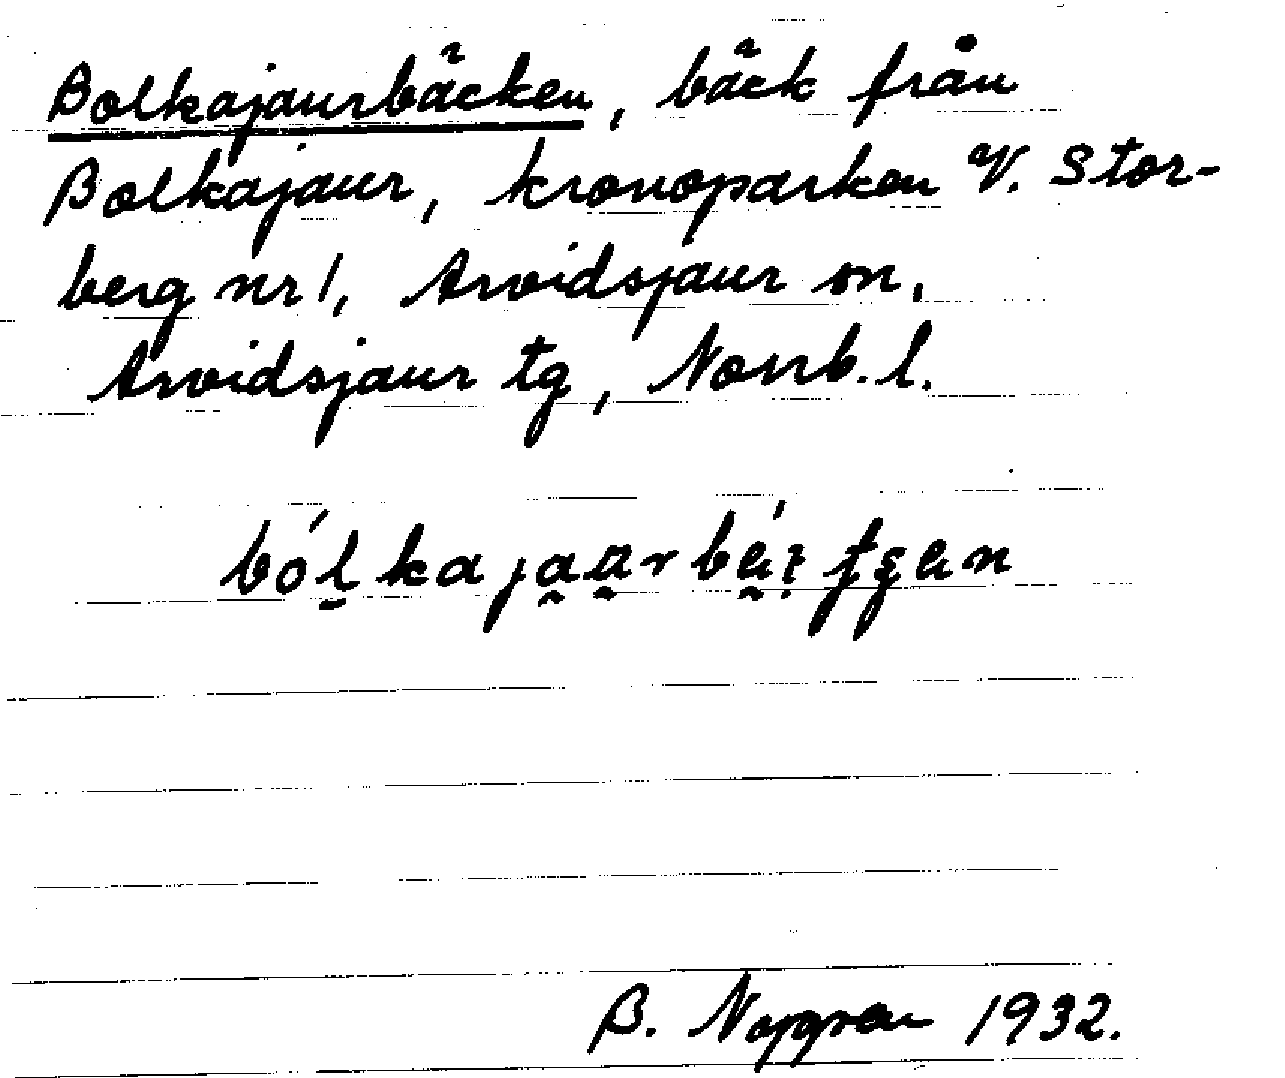 Bolkajaurbäcken, bäck från
Bolkajaur, kronoparken V. Stor-
berg nr 1, Arvidsjaur sn,
Arvidsjaur tg, Norrb. l.
B. Nygren 1932.